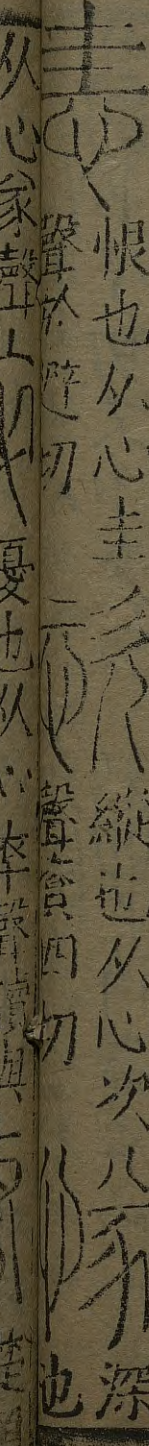 恚恨也从心圭聲於避切恣縱也从心次聲資四切㥞深也
从心㒸聲悴憂也从心卒聲讀與